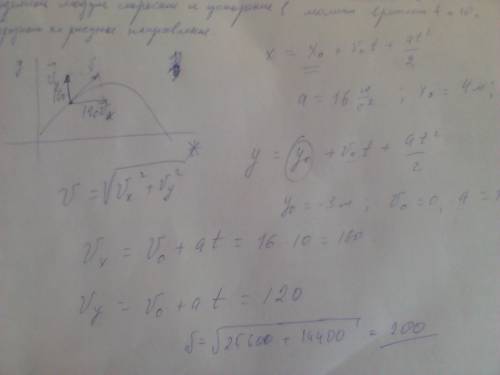 модули скорости и ускорение в момент времени t = 10,
на рисунке направление
y
x = x₀ + v₀t + at²/2
a = 16 м/с² ; x₀ = 4м;
x
y = y₀ + v₀t + at²/2
v = √(vₓ² + v_y²)
y₀ = -3м ; v₀ = 0, a =
vₓ = v₀ + at = 16 · 10 = 160
v_y = v₀ + at = 120
v = √(25600 + 14400) = 200